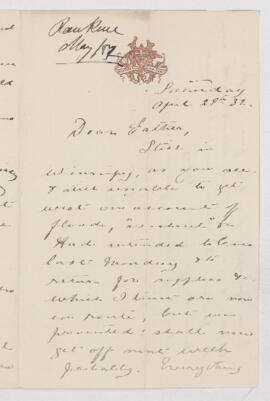 Rankine
May/82
Saturday
April 29th 82
Dear Father,
Still in
Winnipeg, as you see,
& am unable to get
west on account of
floods, "washouts" &c
Had intended to leave
last Monday & to
return for supplies &c
which I trust are now
en route, but was
prevented: shall now
get off next week
probably. Everything